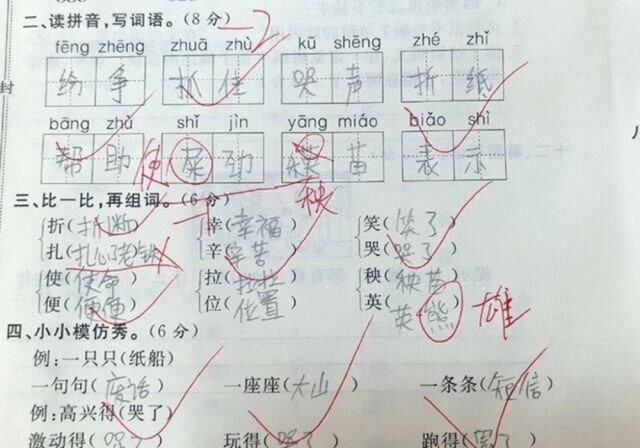 二、读拼音,写词语。(8分) -2
fēng zhēng zhuā zhù kū shēng zhé zhǐ
纷争 抓住 哭声 折纸
封
bāng zhù shǐ jìn yāng miáo biǎo shì
帮助 使 屎劲 苗 表示
三、比一比,再组词。(6分) 秧
折(折断) 幸(幸福) 笑(笑了)
扎(扎心了老铁) 辛(辛苦) 哭(哭了)
使(使命) 拉(拉拉) 秧(秧苗)
便(便便) 位(位置) 英(英熊) 雄
四、小小模仿秀。(6分)
例:一只只(纸船)
一句句(废话) 一座座(大山) 一条条(短信)
例:高兴得(哭了)
激动得(哭了) 玩得(哭了) 跑得(累了)